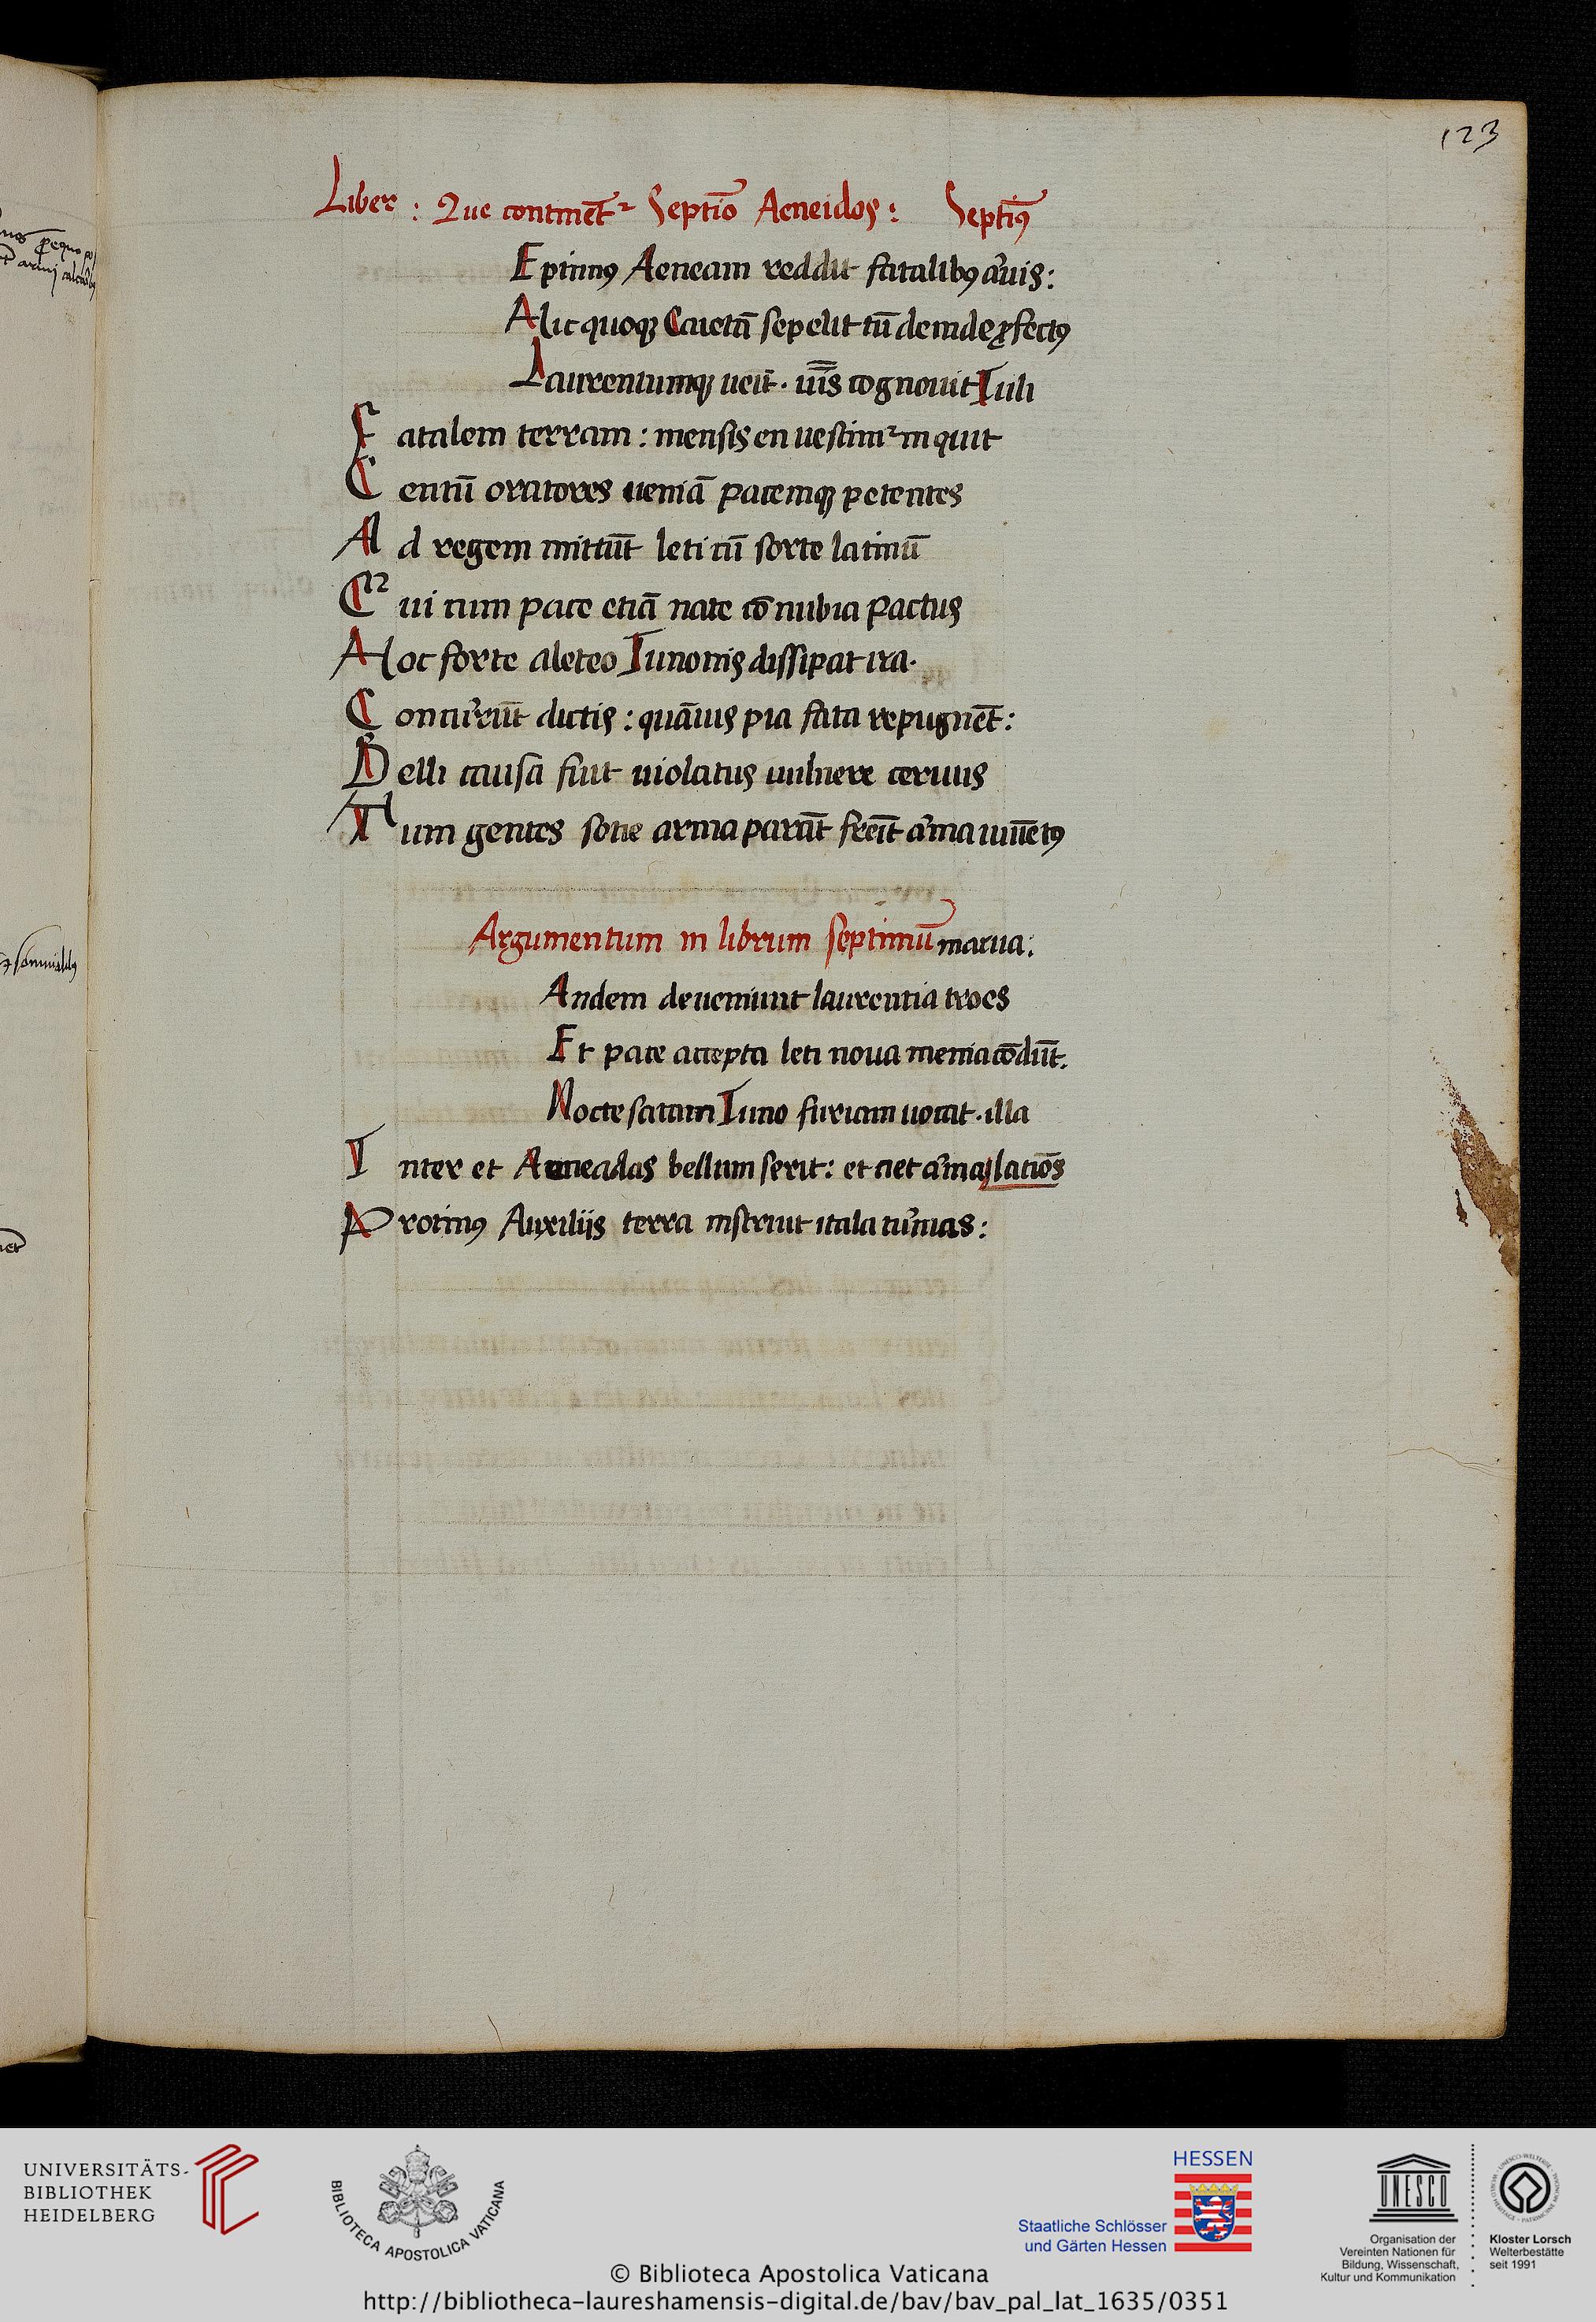 123
Liber : Que continēt² Septīo Aeneidos : Septīꝰ
Eptimꝰ Aeneam reddit fatalibꝰ a͛uis :
Hic quoqꝫ Caietā sepelit tū deinde ꝓfectꝰ
Laurentumqꝫ ueīt · uīs cognouit Iuli
Fatalem terram : mensis en uestim² inquit
Centū oratores ueniā pacemqꝫ petentes
Ad regem mittūt leti cū sorte latinū
Cui cum pace etiā nate cōnubia pactus
Hoc forte aleteo Iunonis dissipat ira ·
Concur͛rūt dictis : quāuis pia fata repugnēt :
Belli causa fuit uiolatus uulnere ceruus
Tum gentes sotie arma parāt freīt a͛ma iuuētꝰ
Argumentum in librum septimū
marua :
Andem deueniunt laurentia troes
Et pace accepta leti noua menia cōdūt :
Nocte satam Iuno furiam uocat · illa
Inter et Aeneadas bellum serit : et ciet a͛ma latiōs
Protinꝰ Auxiliis terra instruit itala tu͛mas :
nus
somnialibꝰ
UNIVERSITÄTS-
BIBLIOTHEK
HEIDELBERG
BIBLIOTECA APOSTOLICA VATICANA
HESSEN
Staatliche Schlösser
und Gärten Hessen
UNESCO
Organisation der
Vereinten Nationen für
Bildung, Wissenschaft,
Kultur und Kommunikation
Kloster Lorsch
Welterbestätte
seit 1991
© Biblioteca Apostolica Vaticana
http://bibliotheca-laureshamensis-digital.de/bav/bav_pal_lat_1635/0351